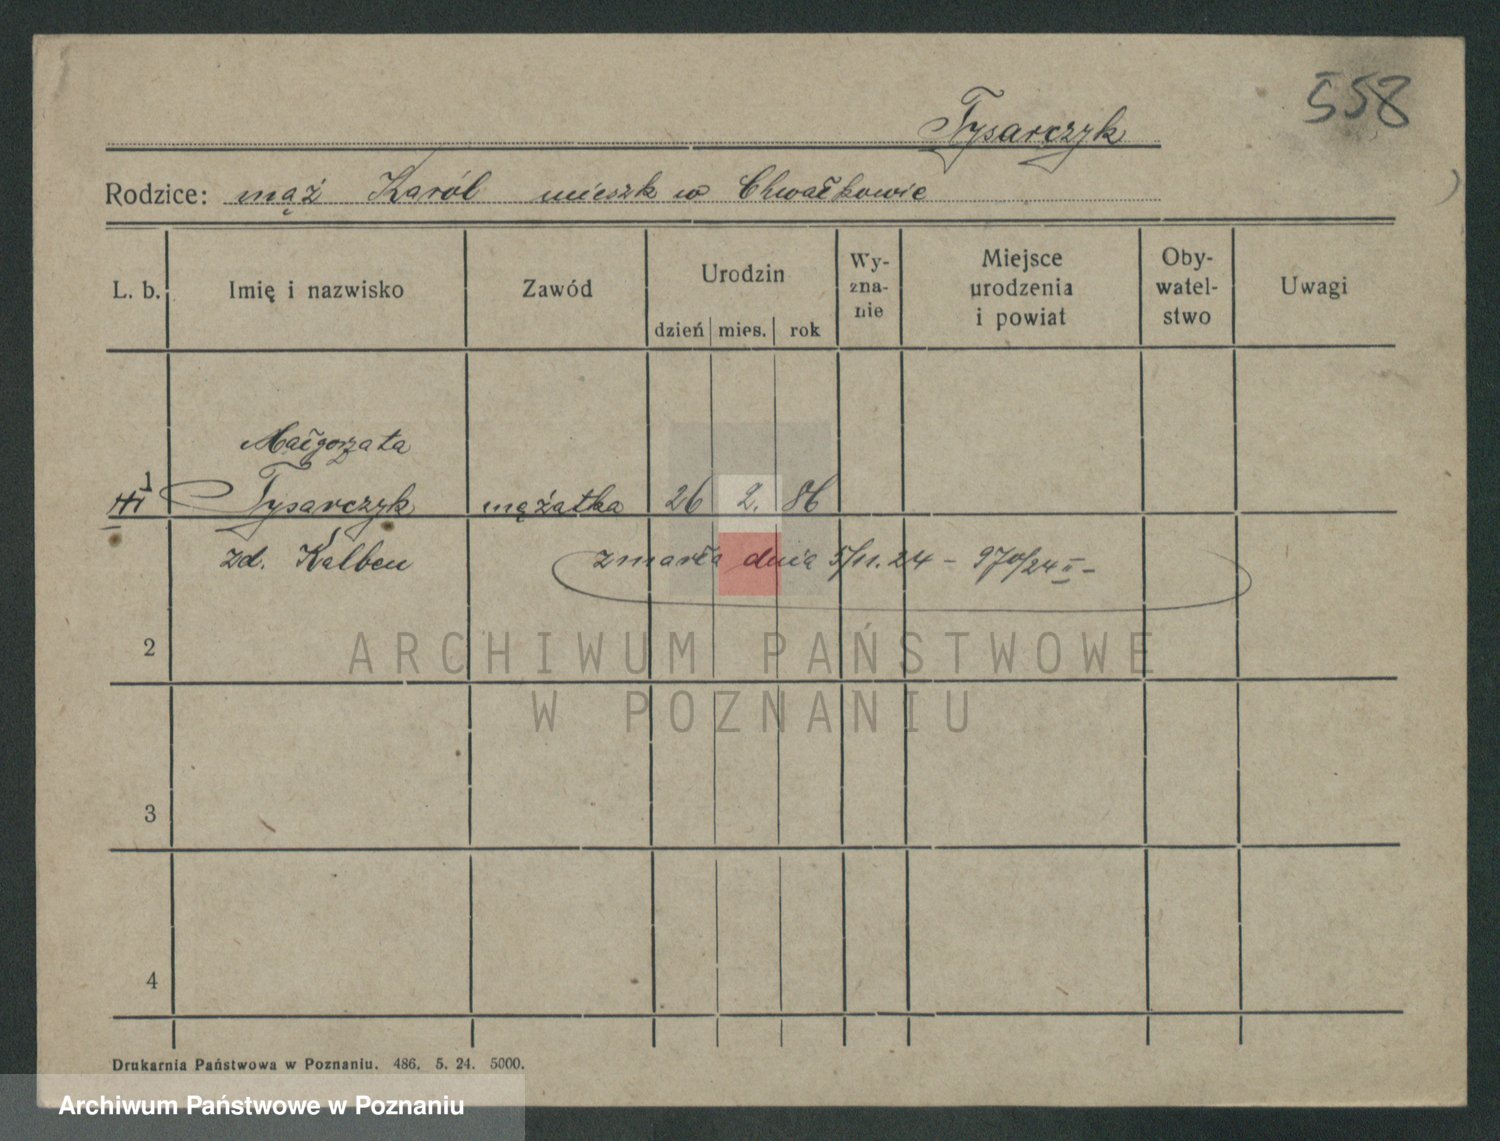 558
Tysarczyk
Rodzice: mąż Karól mieszk w Chwałkowie
L. b. Imię i nazwisko Zawód Urodzin dzień mies. rok Wy-zna-nie Miejsce urodzenia i powiat Oby-watel-stwo Uwagi
Małgorzata
1 Tysarczyk mężatka 26 2. 86
zd. Kalben zmarła dnia 5/11. 24 – 970/24 II –
2
ARCHIWUM PAŃSTWOWE
W POZNANIU
3
4
Drukarnia Państwowa w Poznaniu. 486. 5. 24. 5000.
Archiwum Państwowe w Poznaniu